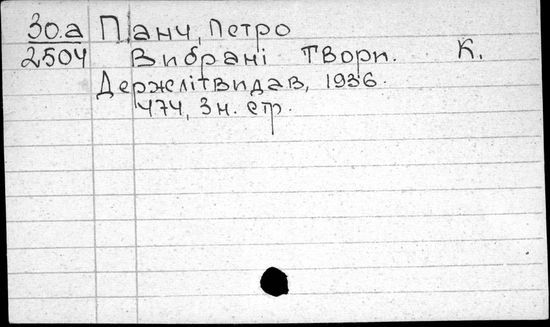 30.а Панч, Петро
2504 Вибрані твори. К.
Держлітвидав, 1936.
474, 3 н. стр.